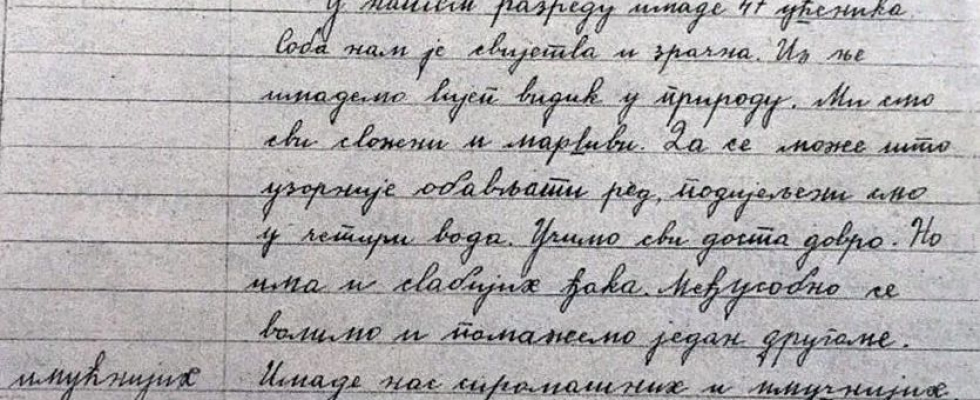 У нашем разреду имаде 47 ученика.
Соба нам је свијетла и зрачна. Из ње
имадемо лијеп видик у природу. Ми смо
сви сложни и марљиви. Да се може што
узорније обављати ред, подијељени смо
у четири вода. Учимо сви доста добро. Но
има и слабијих ђака. Међусобно се
волимо и помажемо један другоме.
имућнијих Имаде нас сиромашних и имучнијих.